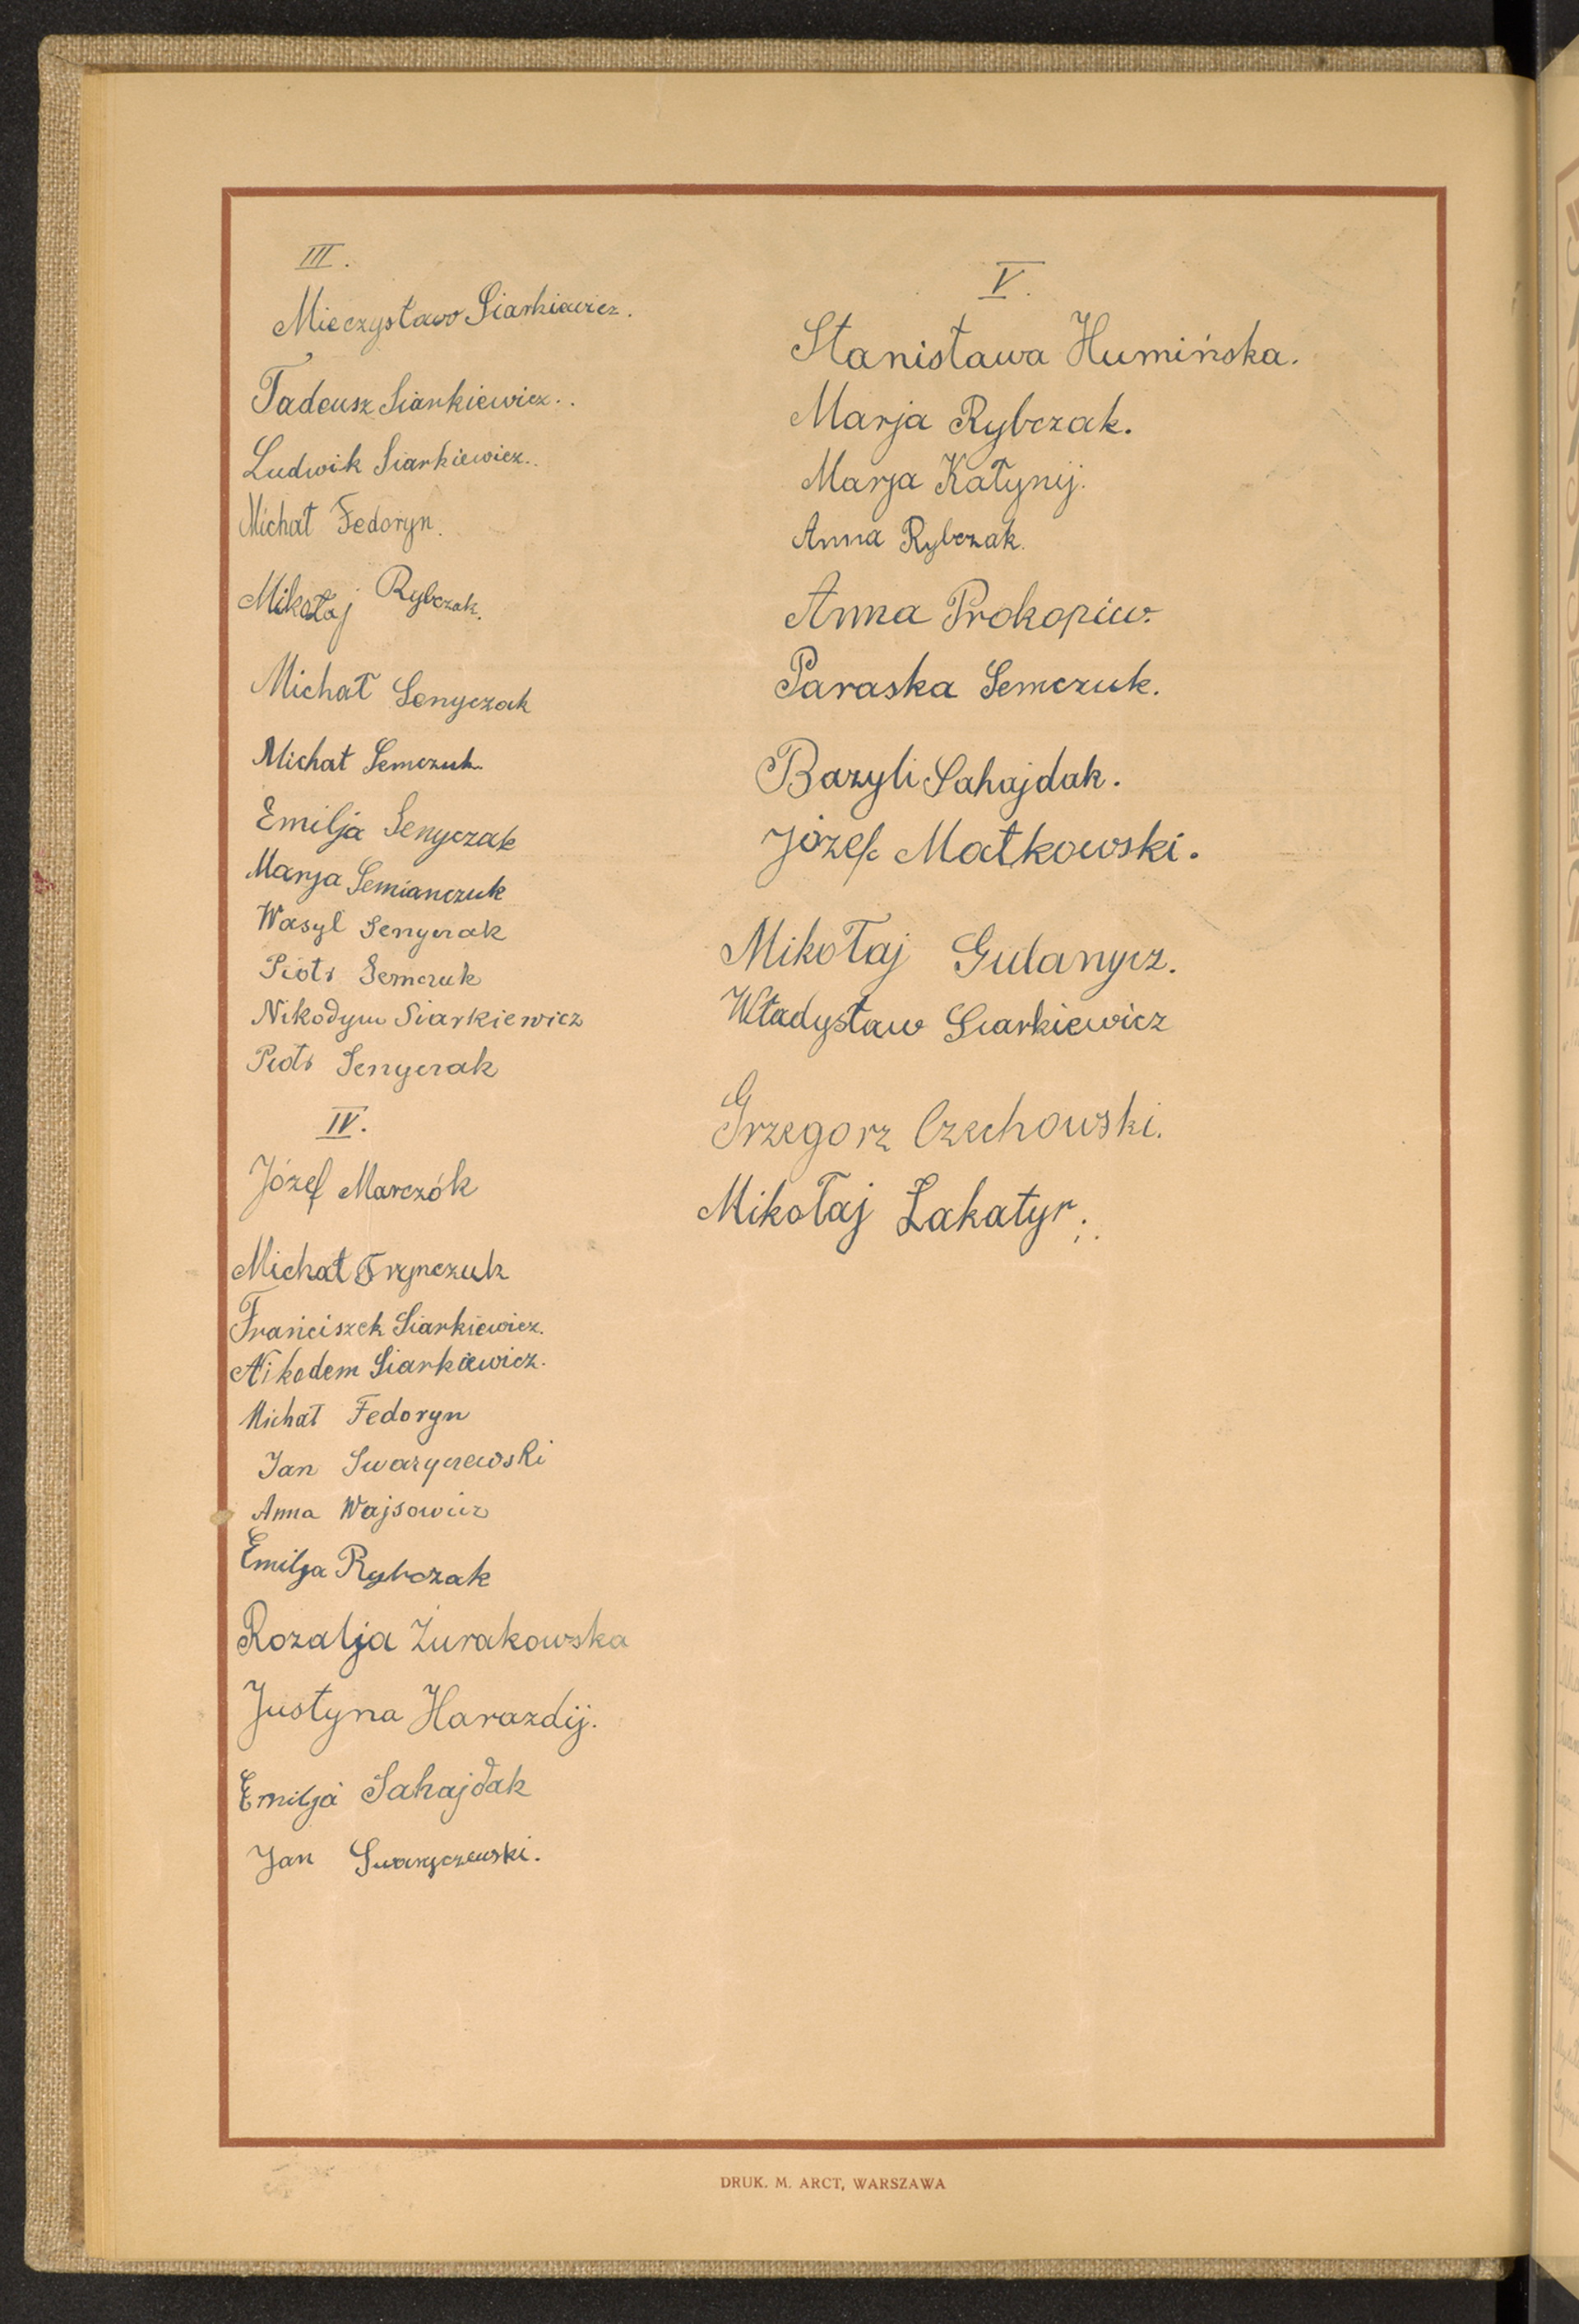 III.
Mieczysław Siarkiewicz.
Tadeusz Siarkiewicz..
Ludwik Siarkiewicz..
Michał Fedoryn.
Mikołaj Rybczak.
Michał Senyczak
Michał Semczuk.
Emilja Senyczak
Marja Semianczuk
Wasyl Senyczak
Piotr Semczuk
Nikodym Siarkiewicz
Piotr Senyczak
IV.
Józef Marczók
Michał Frynczuk
Franciszek Siarkiewicz.
Nikodem Siarkiewicz.
Michał Fedoryn
Jan Swaryczewski
Anna Wajsowicz
Emilja Rybczak
Rozalja Żurakowska
Justyna Harazdij.
Emilja Sahajdak
Jan Swaryczewski.
V.
Stanisława Humińska.
Marja Rybczak.
Marja Kałynij.
Anna Rybczak.
Anna Prokopiw.
Paraska Semczuk.
Bazyli Sahajdak.
Józef Matkowski.
Mikołaj Gulanycz.
Władysław Siarkiewicz
Grzegorz Czechowski.
Mikołaj Łakatyr.
DRUK. M. ARCT, WARSZAWA